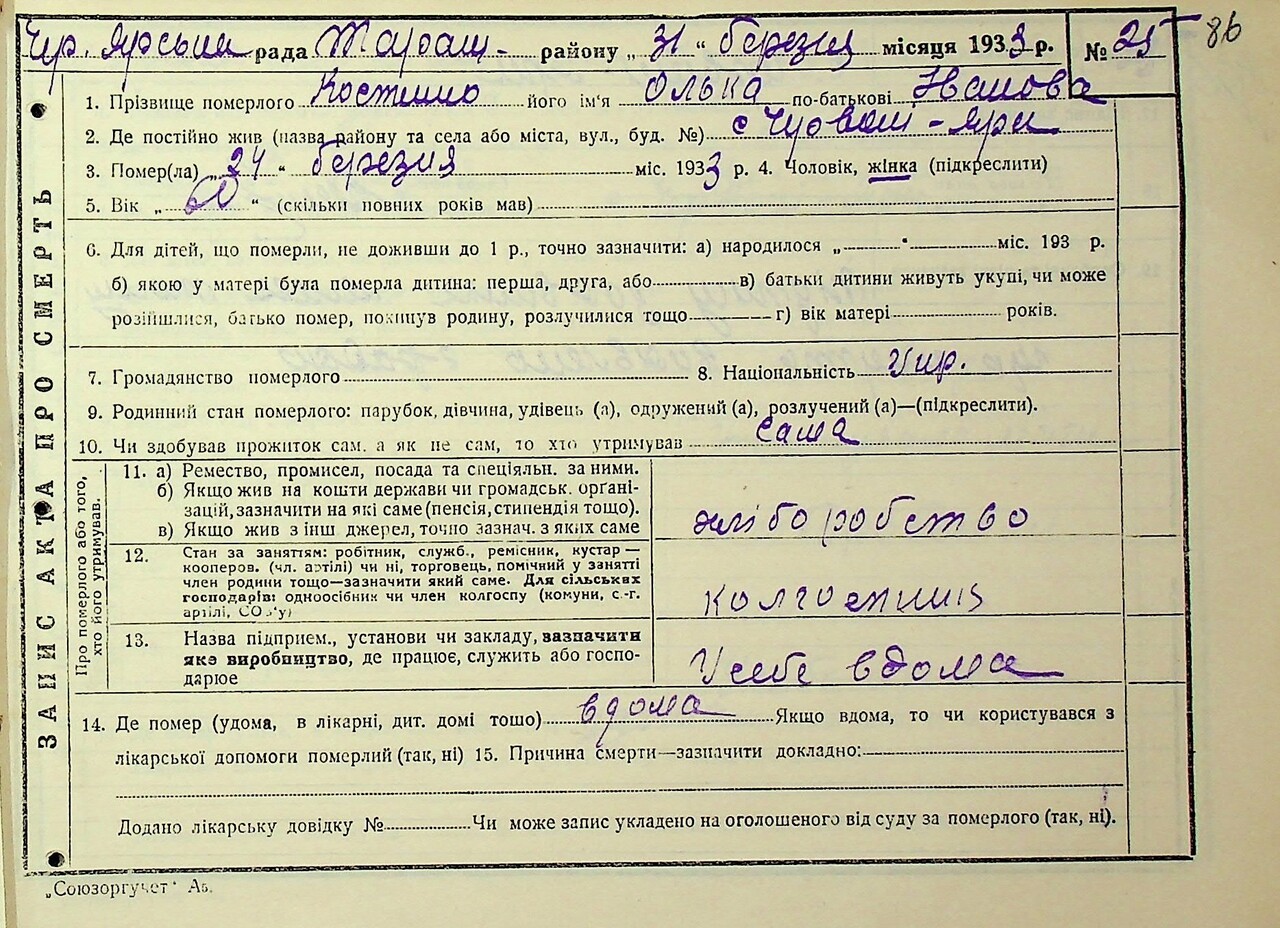 Чер. Ярський рада Таращ- району „31“ березня місяця 1933 р. № 25 86
1. Прізвище померлого Костишо його ім'я Олька по-батькові Іванова
2. Де постійно жив (назва району та села або міста, вул., буд. №) с Червон-Яри
3. Помер(ла) „24“ березня міс. 1933 р. 4. Чоловік, жінка (підкреслити)
5. Вік „60“ (скільки повних років мав)
6. Для дітей, що померли, не доживши до 1 р., точно зазначити: а) народилося „ “ міс. 193 р.
б) якою у матері була померла дитина: перша, друга, або в) батьки дитини живуть укупі, чи може
розійшлися, батько помер, покинув родину, розлучилися тощо г) вік матері років.
7. Громадянство померлого 8. Національність Укр.
9. Родинний стан померлого: парубок, дівчина, удівець (а), одружений (а), розлучений (а)—(підкреслити).
10. Чи здобував прожиток сам, а як не сам, то хто утримував сама
ЗАПИС АКТА ПРО СМЕРТЬ
Про померлого або того, хто його утримував.
11. а) Ремество, промисел, посада та спеціяльн. за ними.
б) Якщо жив на кошти держави чи громадськ. орґані-
зацій, зазначити на які саме (пенсія, стипендія тощо).
в) Якщо жив з інш джерел, точно зазнач. з яких саме
хліборобство
12. Стан за заняттям: робітник, служб., ремісник, кустар—
кооперов. (чл. артілі) чи ні, торговець, помічний у занятті
член родини тощо—зазначити який саме. Для сільських
господарів: одноосібник чи член колгоспу (комуни, с.-г.
артілі, СОЗ'у)
колгоспниця
13. Назва підприєм., установи чи закладу, зазначити
яке виробництво, де працює, служить або госпо-
дарює
У себе вдома
14. Де помер (удома, в лікарні, дит. домі тощо) вдома Якщо вдома, то чи користувався з
лікарської допомоги померлий (так, ні) 15. Причина смерти—зазначити докладно:
Додано лікарську довідку № Чи може запис укладено на оголошеного від суду за померлого (так, ні).
„Союзоргучет“